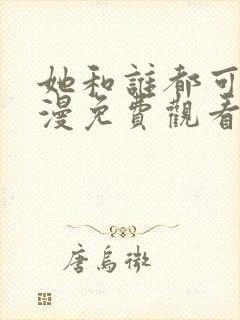 她和誰都可
漫免費觀看
唐烏微